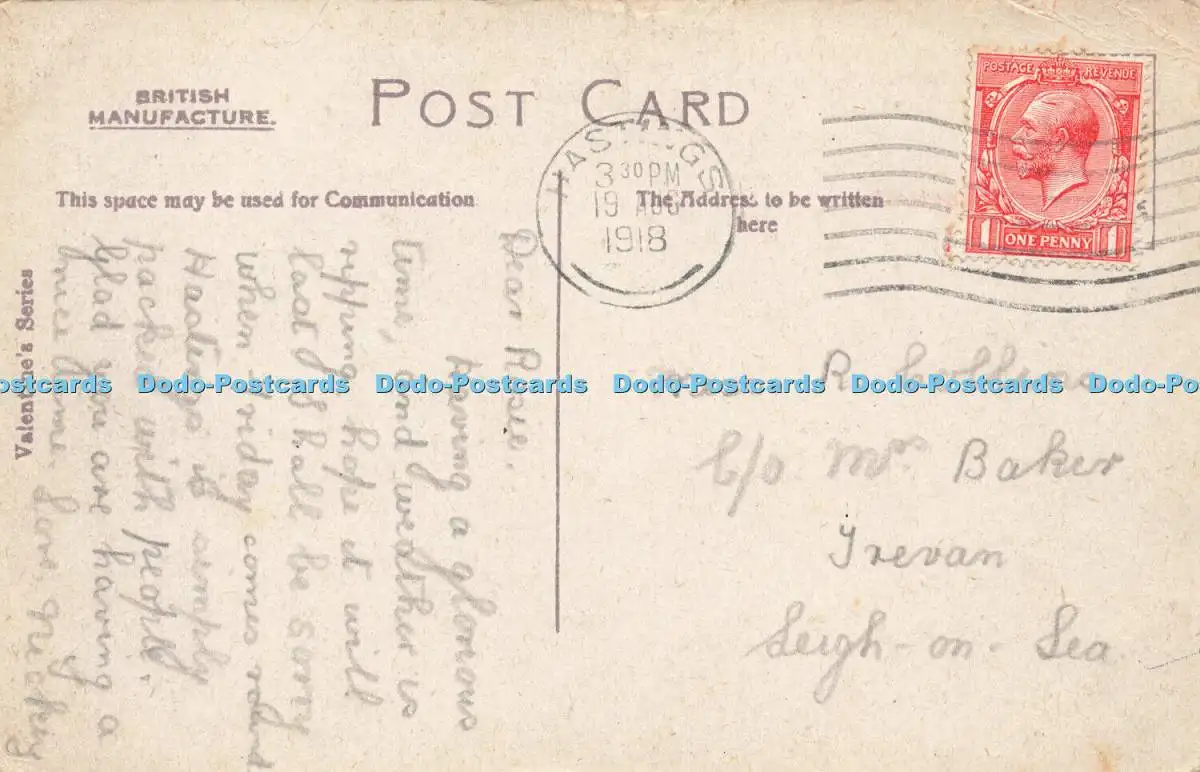 BRITISH
MANUFACTURE.
POST CARD
This space may be used for Communication
The Address to be written
here
Valentine's Series
HASTINGS
3 30 PM
19 AUG
1918
POSTAGE REVENUE
1 ONE PENNY 1
Dear Rosie.
Having a glorious
time, and weather is
ripping, hope it will
last I shall be sorry
when Friday comes round
Hastings is simply
packed with people.
Glad you are having a
nice time. Love
R Collins
C/o Mrs Baker
Trevan
Leigh-on-Sea
Dodo-Postcards Dodo-Postcards Dodo-Postcards Dodo-Postcards